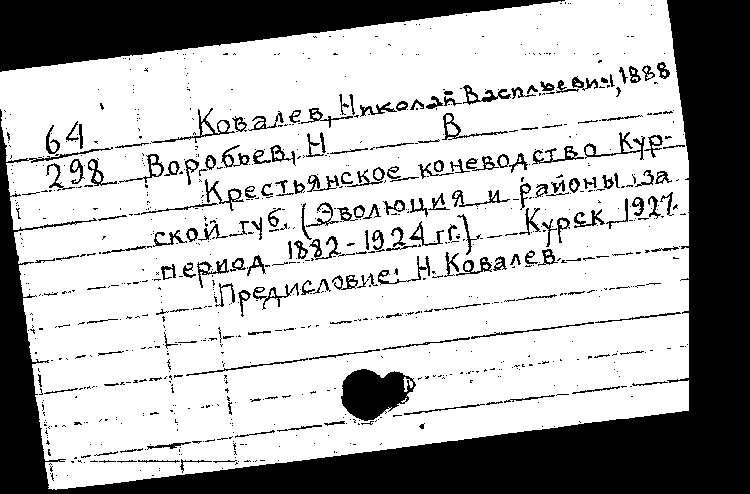 64
298
Ковалев, Николай Васильевич, 1888
Воробьев, Н В
Крестьянское коневодство Кур-
ской губ. (Эволюция и районы за
период 1882-1924 гг.). Курск, 1927.
Предисловие: Н. Ковалев.